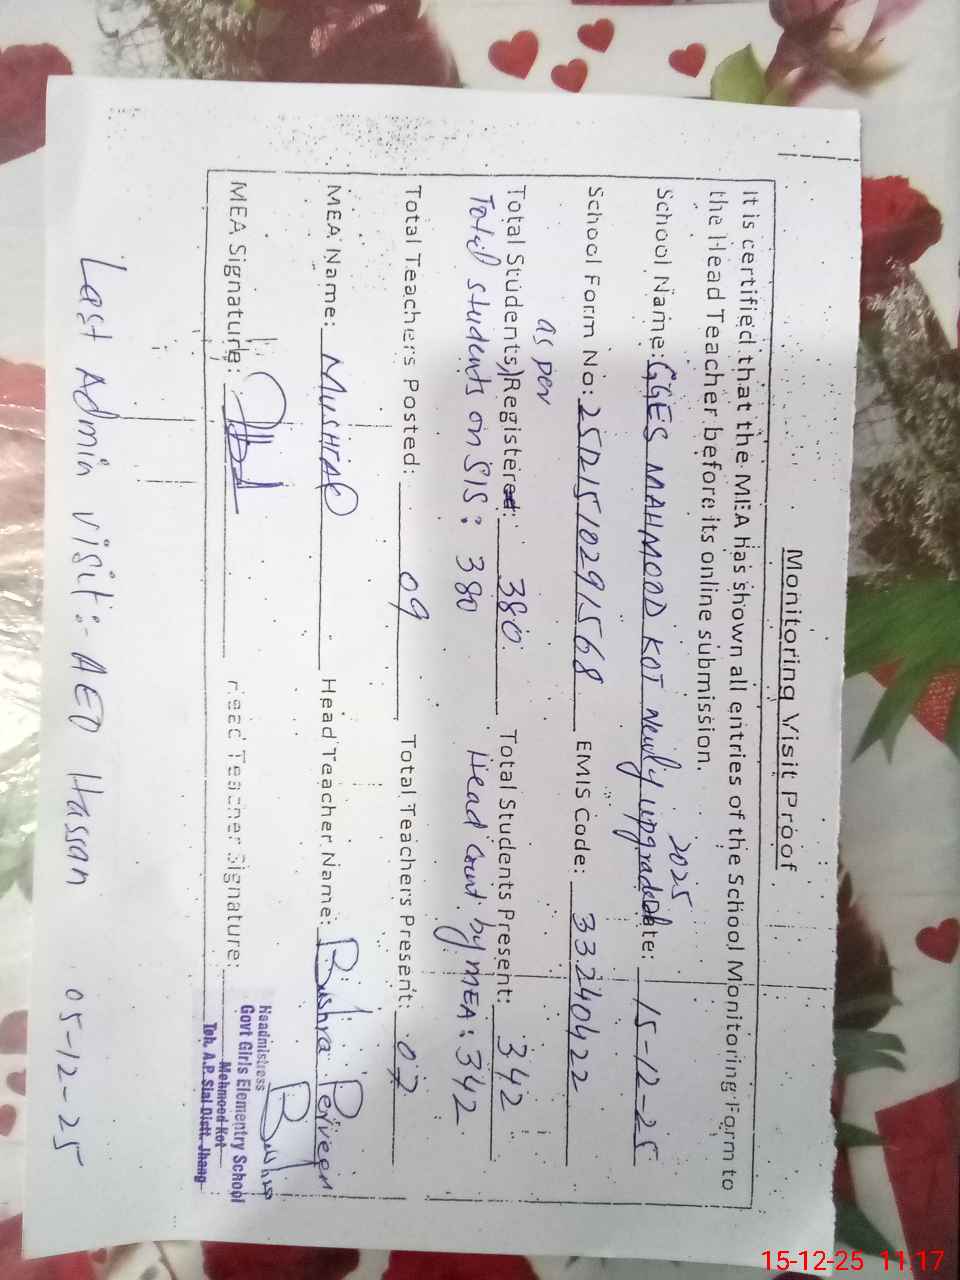 Monitoring Visit Proof
It is certified that the MEA has shown all entries of the School Monitoring Form to
the Head Teacher before its online submission.
2025
School Name: GGES MAHMOOD KOT Newly upgraded Date: 15-12-25
School Form No: 25D21510291568 EMIS Code: 33240422
as per
Total Students Registered: 380 Total Students Present: 342
Total students on SIS: 380 Head Count by MEA: 342
Total Teachers Posted: 09 Total Teachers Present: 07
MEA Name: MUSHTAQ Head Teacher Name: Bushra Perveen
MEA Signature: Head Teacher Signature: Bushra
Headmistress
Govt Girls Elementry School
Mehmood Kot
Teh, A.P. Sial Distt. Jhang
Last Admin visit:- AEO Hassan 05-12-25
15-12-25 11:17